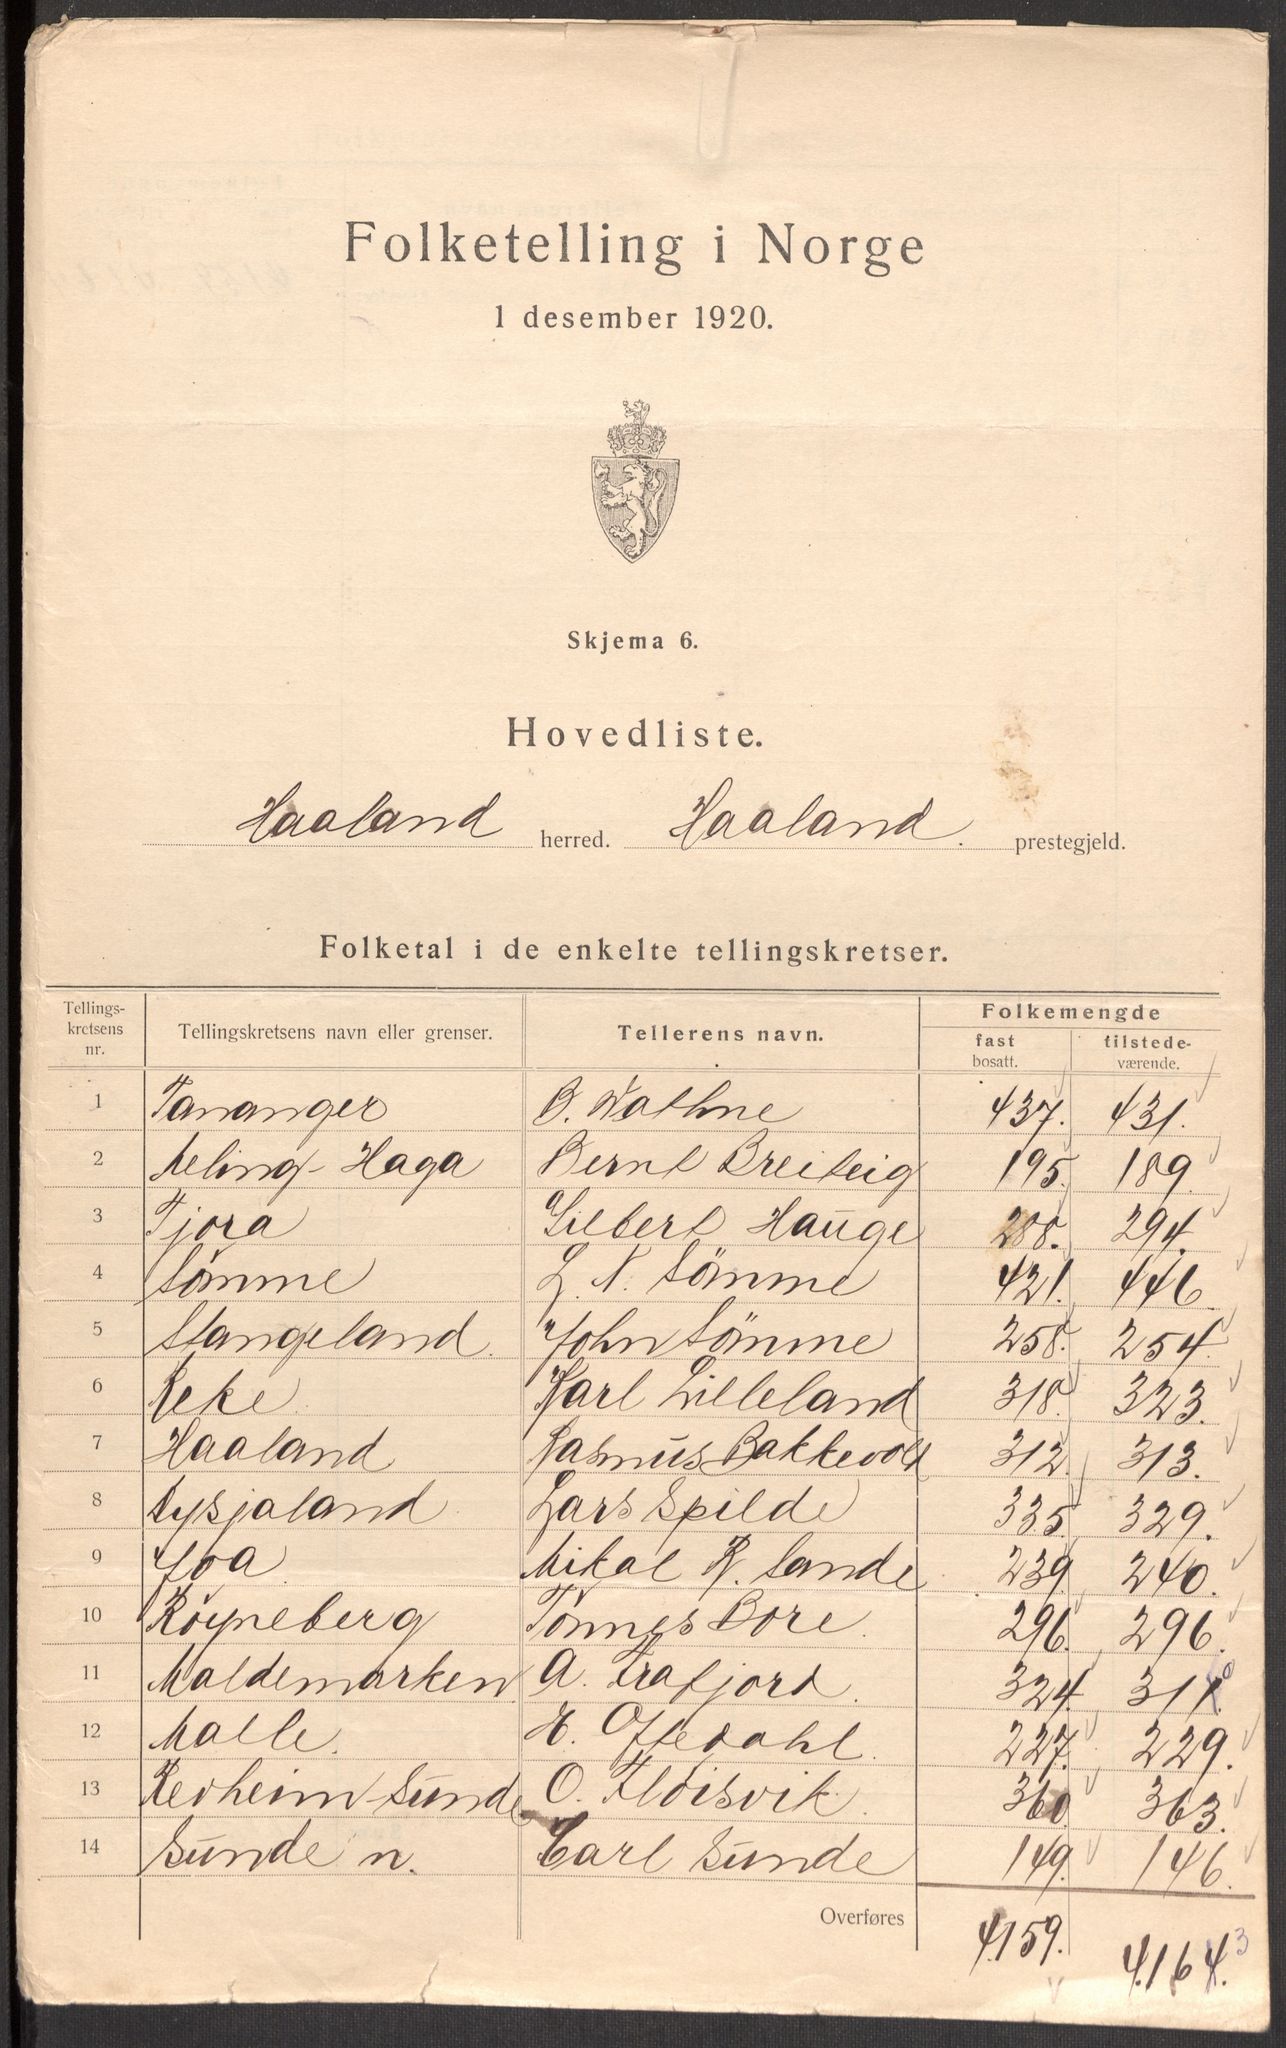 Folketelling i Norge
1 desember 1920.
Skjema 6.
Hovedliste.
Haaland herred. Haaland. prestegjeld.
Folketal i de enkelte tellingskretser.
Tellings-kretsens nr. Tellingskretsens navn eller grenser. Tellerens navn. Folkemengde fast bosatt. tilstede-værende.
1 Tananger B. Wathne 437. 431.
2 Meling-Haga Bernt Breiteig 195. 189.
3 Tjora Gilbert Hauge 288. 294.
4 Sömme L. N. Sömme 421. 446.
5 Stangeland. John Sömme 258. 254.
6 Reke Karl Lilleland 318. 323.
7 Haaland Rasmus Bakkevold 312. 313.
8 Mysjaland Lars Spilde 335. 329.
9 Joa Mikal R. Sande 239. 240.
10 Röyneberg Tönnes Bore. 296. 296.
11 Maldemarken A. Frafjord. 324. 311. 0
12 Malle. E. Oftedahl. 227. 229.
13 Revheim-Sunde O. Flöisvik. 360. 363.
14 Sunde n. Carl Sunde 149. 146.
Overføres 4159. 4164. 3